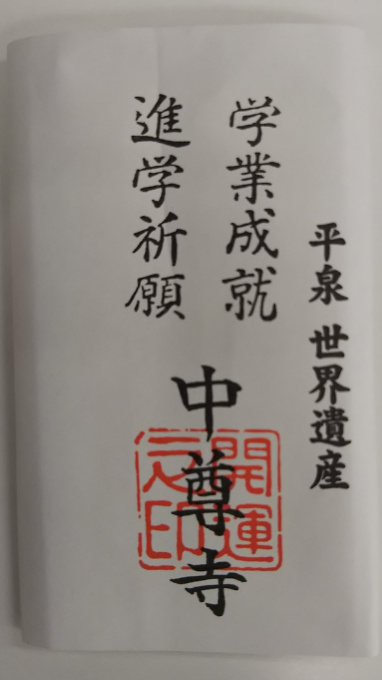 平泉 世界遺産
学業成就
進学祈願
中尊寺
開運
之印